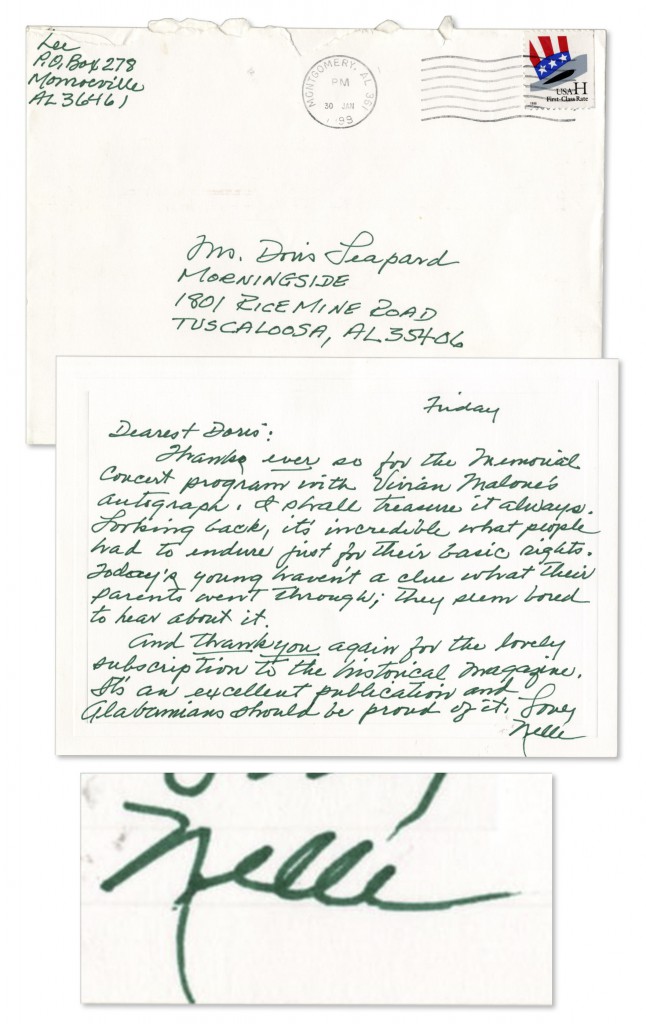 Lee
P.O. Box 278
Monroeville
AL 36461
MONTGOMERY, AL 361
PM
30 JAN
1999
USA H
First-Class Rate
Ms. Doris Leapard
MORNINGSIDE
1801 RICE MINE ROAD
TUSCALOOSA, AL 35406
Friday
Dearest Doris:
Thanks ever so for the Memorial
Concert program with Vivian Malone's
autograph. I shall treasure it always.
Looking back, it's incredible what people
had to endure just for their basic rights.
Today's young haven't a clue what their
parents went through; they seem bored
to hear about it.
And thank you again for the lovely
subscription to the historical magazine.
It's an excellent publication and
Alabamians should be proud of it. Love,
Nelle
Nelle